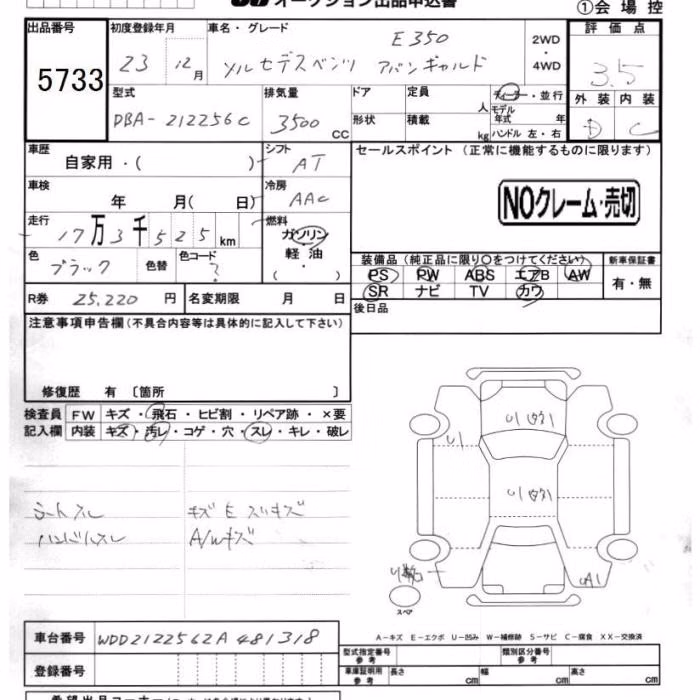 オークション出品申込書
①会場控
出品番号 初度登録年月 車名・グレード 2WD ・ 4WD 評価点
5733
23 12月
E350
メルセデスベンツ アバンギャルド
3.5
型式 排気量 ドア 定員 人 ディーラー・並行
モデル年式 年
外装 内装
DBA-212256C 3500 CC 形状 積載 kg ハンドル 左・右 D C
車歴 シフト セールスポイント (正常に機能するものに限ります)
自家用・( ) AT
車検 冷房
年 月( 日) AAC
NOクレーム・売切
走行 燃料
17万3千525km ガソリン
軽油
・( )
色 色替 色コード
ブラック ?
装備品 (純正品に限り○をつけてください) 新車保証書
PS PW ABS エアB AW 有・無
SR ナビ TV カワ
R券 25,220 円 名変期限 月 日 後日品
注意事項申告欄 (不具合内容等は具体的に記入して下さい)
修復歴 有 〔箇所 〕
検査員 FW キズ・飛石・ヒビ割・リペア跡・×要
記入欄 内装 キズ・汚レ・コゲ・穴・スレ・キレ・破レ
シートスレ
ハンドルスレ
キズ E スリキズ
A/Wキズ
U1
スペア
A1
A-キズ E-エクボ U-凹み W-補修跡 S-サビ C-腐食 XX-交換済
車台番号 WDD2122562A481318
型式指定番号 参考 類別区分番号 参考
登録番号
車庫証明用 参考 長さ cm 幅 cm 高さ cm